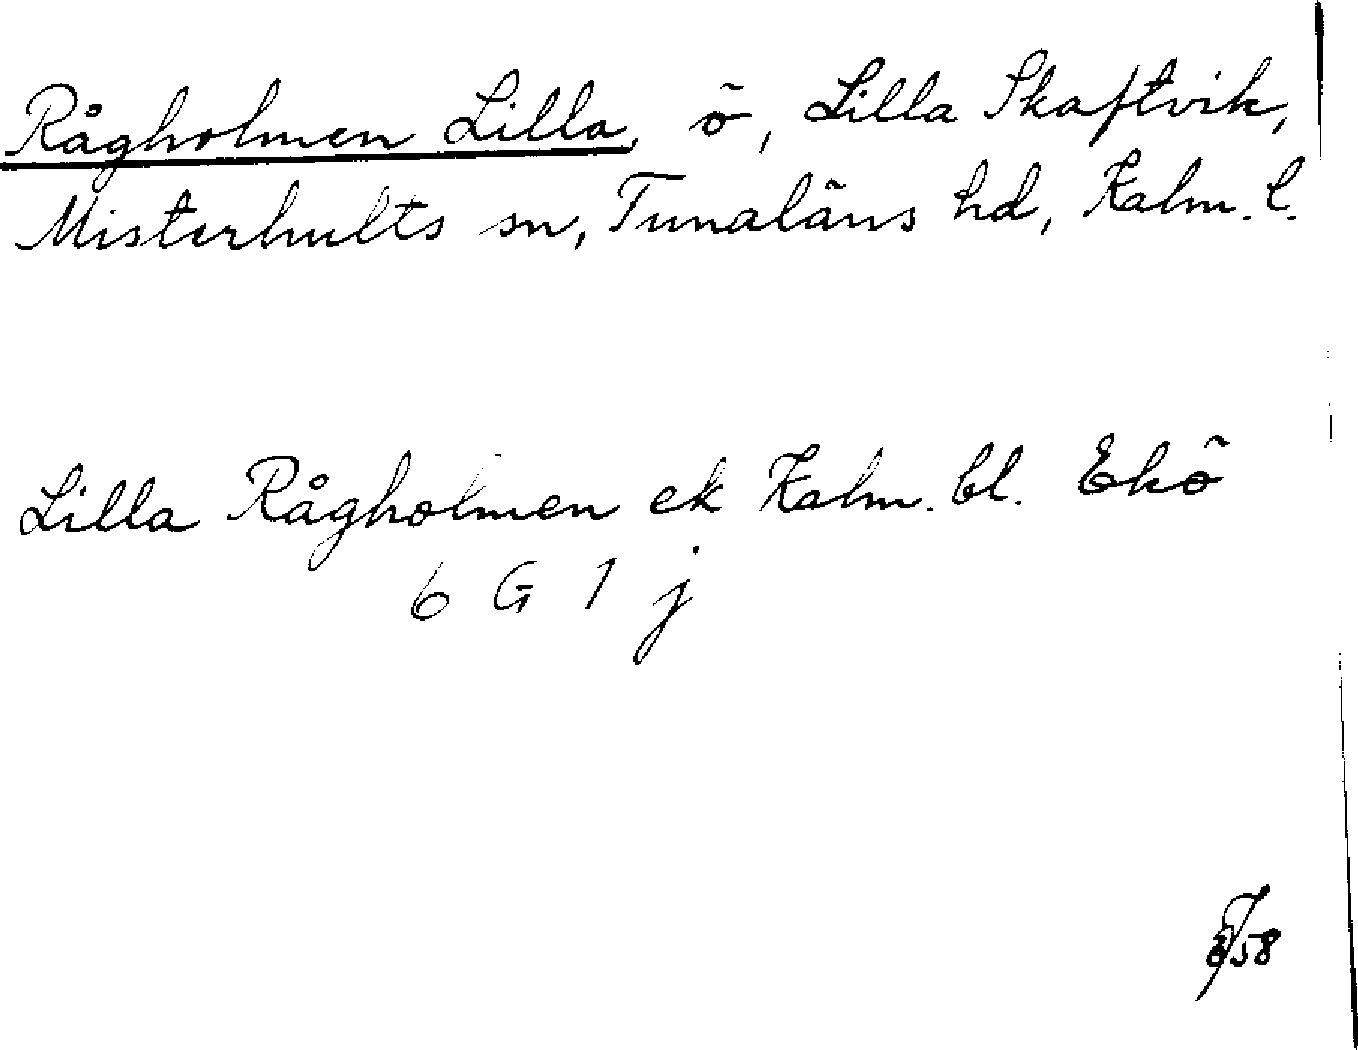 Rågholmen Lilla, ö, Lilla Skaftvik,
Misterhults sn, Tunaläns hd, Kalm. l.
Lilla Rågholmen ek Kalm. bl. Ekö
6 G 1 j
58